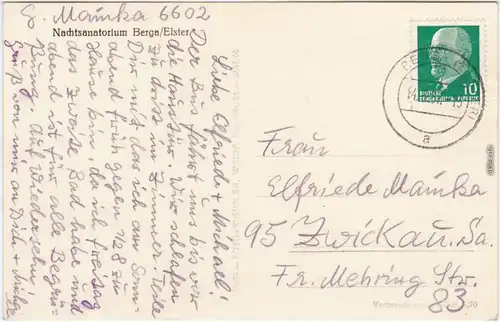 Gp. Mainka 6602
Nachtsanatorium Berga/Elster
Liebe Elfriede + Michael!
Der Bus fährt uns bis vor
die Haustür. Wir schlafen
zu dritt im Zimmer. Teile
Dir mit das ich am Sonn-
abend früh gegen 1/2 8 zu
Hause bin, da ich freitag
das zweite Bad habe und
abend ist für alle Begrü-
ßung. Auf Wiedersehn!
Gruß von mir an Dich +
DEUTSCHE
DEMOKRATISCHE REPUBLIK
10
a
Frau
Elfriede Mainka
95 Zwickau, Sa.
Fr. Mehring Str.
83